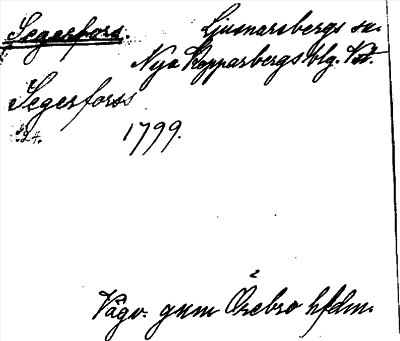 Segerfors.
Ljusnarsbergs sn.
Nya Kopparbergs blg. Vstl.
Segerforss
:24. 1799.
Vägv. gnm Örebro hfdm.